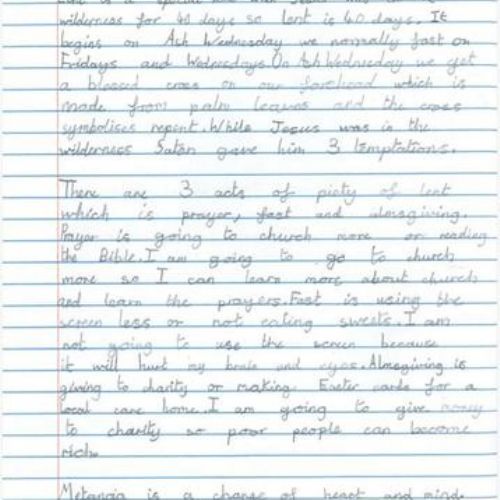 wilderness for 40 days so lent is 40 days. It
begins on Ash Wednesday we normally fast on
Fridays and Wednesdays. On Ash Wednesday we get
a blessed cross on our forehead which is
made from palm leaves and the cross
symbolises repent. While Jesus was in the
wilderness Satan gave him 3 temptations.
There are 3 acts of piety of lent
which is prayer, fast and almsgiving.
Prayer is going to church more or reading
the Bible. I am going to go to church
more so I can learn more about church
and learn the prayers. Fast is using the
screen less or not eating sweets. I am
not going to use the screen because
it will hurt my brain and eyes. Almsgiving is
giving to charity or making Easter cards for a
local care home. I am going to give money
to charity so poor people can become
rich.
Metanoia is a change of heart and mind.